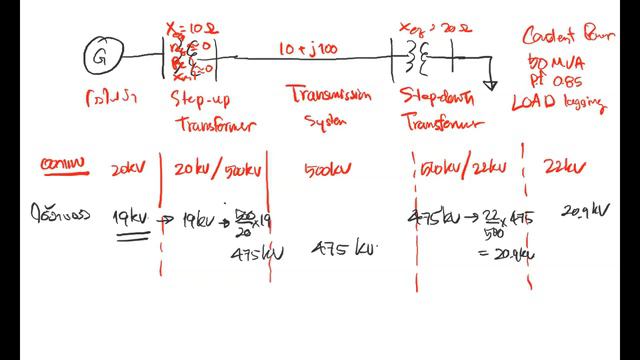 Xeq = 10 Ω
G
10 + j100
Xeq = 20 Ω
Constant Power
50 MVA
Pf 0.85
LOAD lagging
Step-up
Transformer
Transmission
System
Step-down
Transformer
20kV
20 kV / 500kV
500kV
500kV / 22kV
22kV
19kV → 19kV → 500/20 × 19
475kV
475 kV
475kV → 22/500 × 475
= 20.9kV
20.9kV